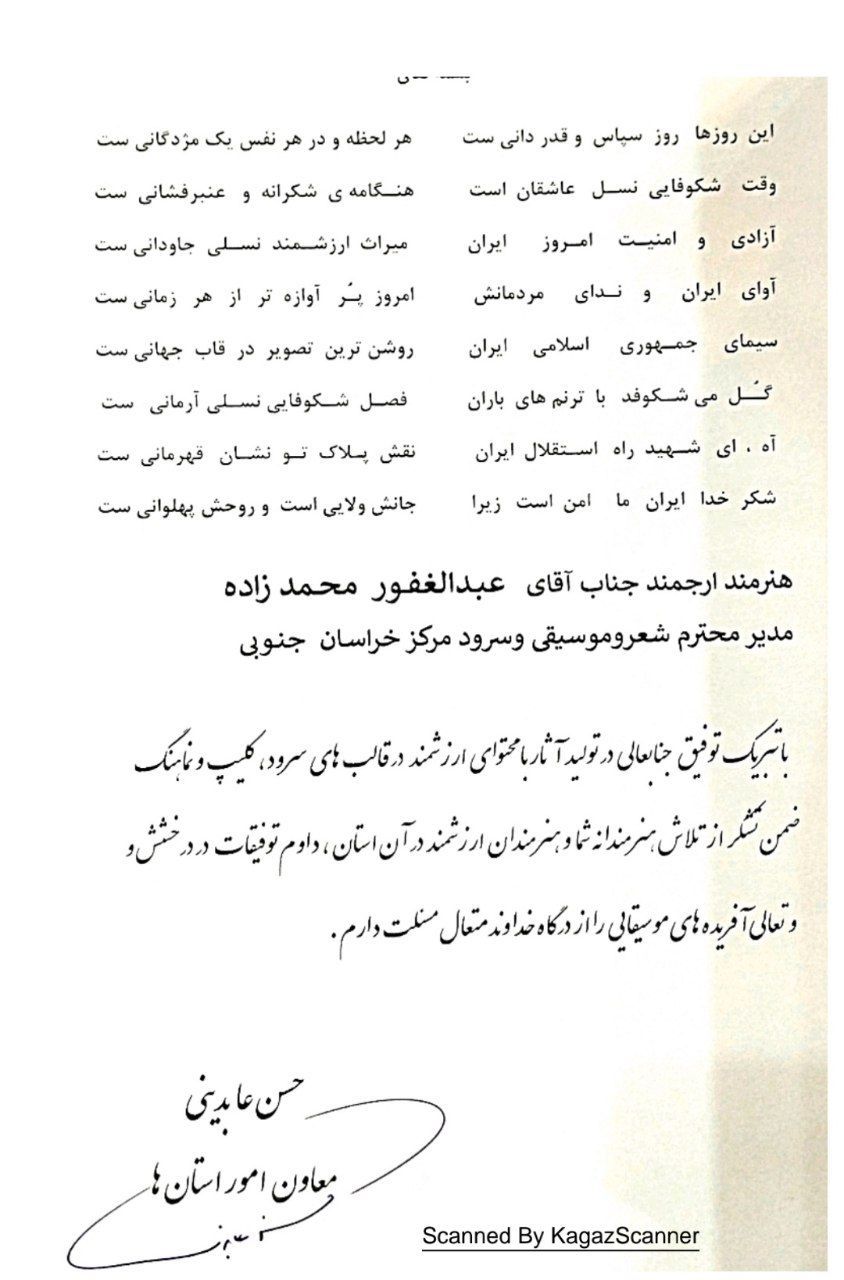 این روزها روز سپاس و قدر دانی ست هر لحظه و در هر نفس یک مژدگانی ست
وقت شکوفایی نسل عاشقان است هنگامه ی شکرانه و عنبرفشانی ست
آزادی و امنیت امروز ایران میراث ارزشمند نسلی جاودانی ست
آوای ایران و ندای مردمانش امروز پُر آوازه تر از هر زمانی ست
سیمای جمهوری اسلامی ایران روشن ترین تصویر در قاب جهانی ست
گُل می شکوفد با ترنم های باران فصل شکوفایی نسلی آرمانی ست
آه ، ای شهید راه استقلال ایران نقش پلاک تو نشان قهرمانی ست
شکر خدا ایران ما امن است زیرا جانش ولایی است و روحش پهلوانی ست
هنرمند ارجمند جناب آقای عبدالغفور محمد زاده
مدیر محترم شعروموسیقی وسرود مرکز خراسان جنوبی
با تبریک توفیق جنابعالی در تولید آثار با محتوای ارزشمند در قالب های سرود، کلیپ و نماهنگ
ضمن تشکر از تلاش هنرمندانه شما و هنرمندان ارزشمند در آن استان ، داوم توفیقات در درخشش و
و تعالی آفریده های موسیقایی را از درگاه خداوند متعال مسئلت دارم .
حسن عابدینی
معاون امور استان ها
Scanned By KagazScanner